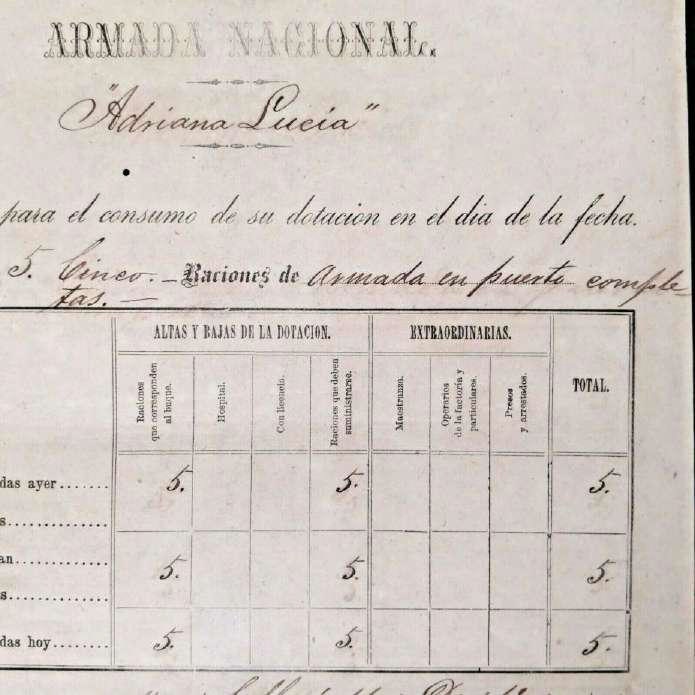 ARMADA NACIONAL.
"Adriana Lucia"
para el consumo de su dotacion en el dia de la fecha.
5. Cinco. — Raciones de Armada en puerto comple-
tas. —
ALTAS Y BAJAS DE LA DOTACION. EXTRAORDINARIAS. TOTAL.
Raciones que corresponden al buque. Hospital. Con licencia. Raciones que deben suministrarse. Maestranza. Operarios de la factoria y particulares. Presos y arrestados.
das ayer....... 5. 5. 5.
s.............
an............ 5. 5. 5.
s.............
das hoy........ 5. 5. 5.